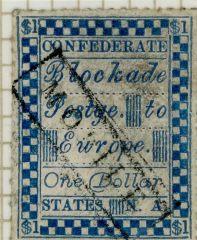 $1 $1
CONFEDERATE
Blockade
Postge. to
Europe.
One Dollar
STATES N. A.
$1 $1